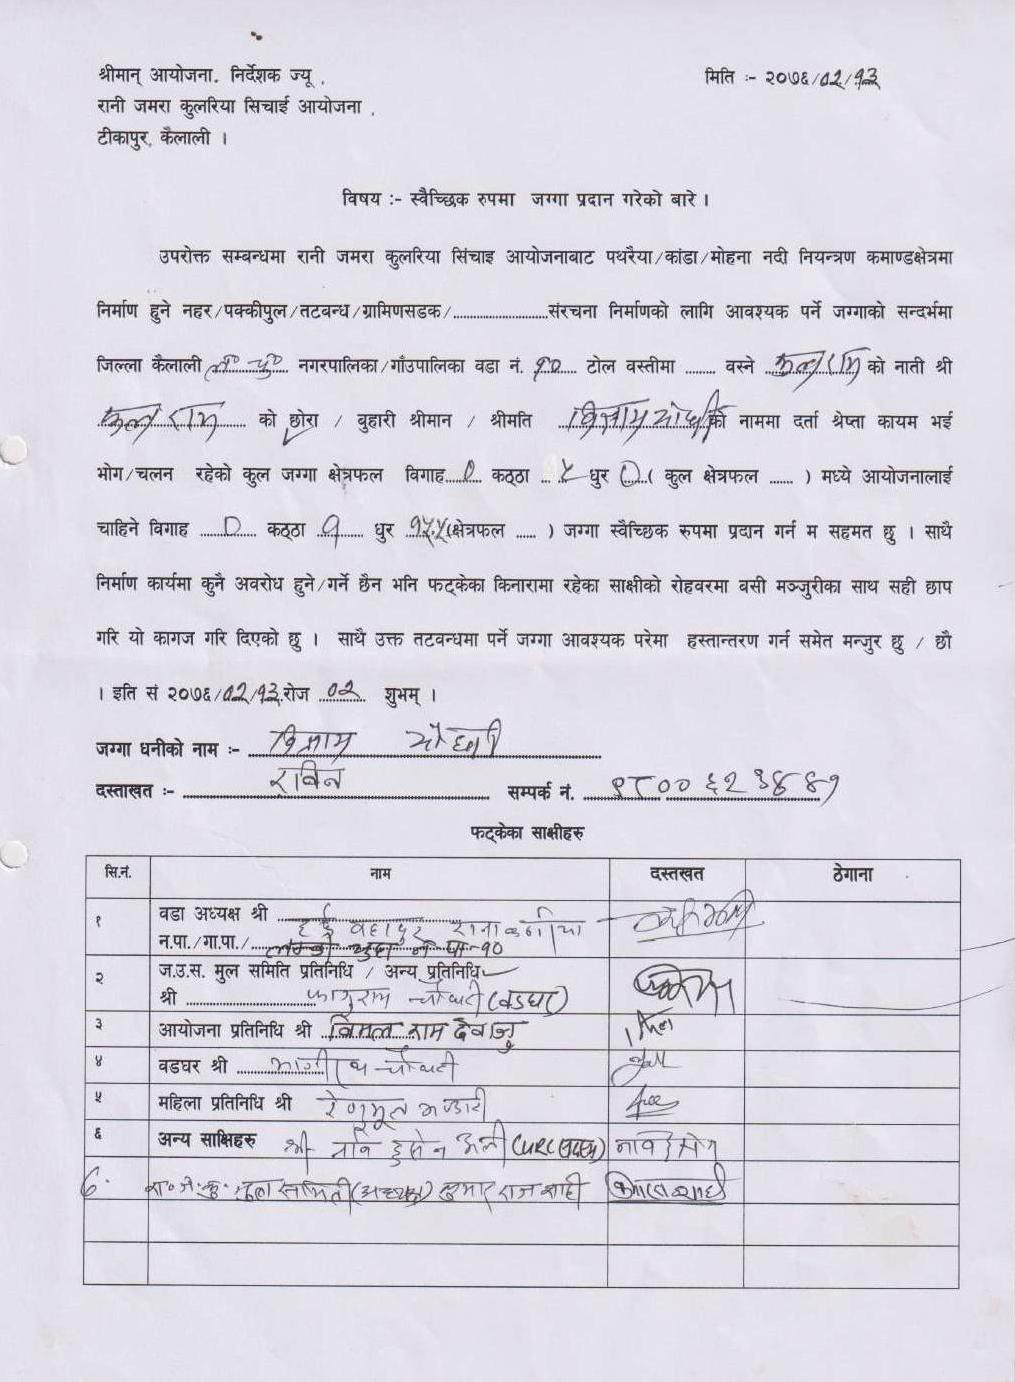 श्रीमान् आयोजना. निर्देशक ज्यू .
मिति :- २०७६/०२/१३
रानी जमरा कुलरिया सिचाई आयोजना .
टीकापुर, कैलाली ।
विषय :- स्वैच्छिक रुपमा जग्गा प्रदान गरेको बारे ।
उपरोक्त सम्बन्धमा रानी जमरा कुलरिया सिंचाइ आयोजनाबाट पथरैया/कांडा/मोहना नदी नियन्त्रण कमाण्डक्षेत्रमा
निर्माण हुने नहर/पक्कीपुल/तटबन्ध/ग्रामिणसडक/........................संरचना निर्माणको लागि आवश्यक पर्ने जग्गाको सन्दर्भमा
जिल्ला कैलाली ल० चु० नगरपालिका/गाँउपालिका वडा नं. १० टोल वस्तीमा ........ वस्ने राम को नाती श्री
राम को छोरा / बुहारी श्रीमान / श्रीमति को नाममा दर्ता श्रेष्ता कायम भई
भोग/चलन रहेको कुल जग्गा क्षेत्रफल विगाह ० कठ्ठा ५ धुर ० ( कुल क्षेत्रफल ...... ) मध्ये आयोजनालाई
चाहिने विगाह ० कठ्ठा १ धुर १५.५ (क्षेत्रफल ...... ) जग्गा स्वैच्छिक रुपमा प्रदान गर्न म सहमत छु । साथै
निर्माण कार्यमा कुनै अवरोध हुने/गर्ने छैन भनि फट्केका किनारामा रहेका साक्षीको रोहवरमा बसी मञ्जुरीका साथ सही छाप
गरि यो कागज गरि दिएको छु । साथै उक्त तटबन्धमा पर्ने जग्गा आवश्यक परेमा हस्तान्तरण गर्न समेत मन्जुर छु / छौ
। इति सं २०७६/०२/१३ रोज ०२ शुभम् ।
जग्गा धनीको नाम :-
दस्ताखत :- सम्पर्क नं.
फट्केका साक्षीहरु
सि.नं. नाम दस्तखत ठेगाना
१ वडा अध्यक्ष श्री बहादुर राना
न.पा./गा.पा./ लम्की चुहा न पा-१०
२ ज.उ.स. मुल समिति प्रतिनिधि / अन्य प्रतिनिधि
श्री फागुराम चौधरी (वडघर)
३ आयोजना प्रतिनिधि श्री विमल राम
४ वडघर श्री चौधरी
५ महिला प्रतिनिधि श्री
६ अन्य साक्षिहरु श्री
रा०ज०कु० मूल समिती (अध्यक्ष) कुमार राज शाही